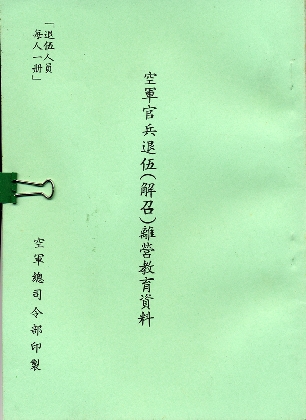 空軍官兵退伍(解召)離營教育資料
「退伍人員
每人一册」
空軍總司令部印製